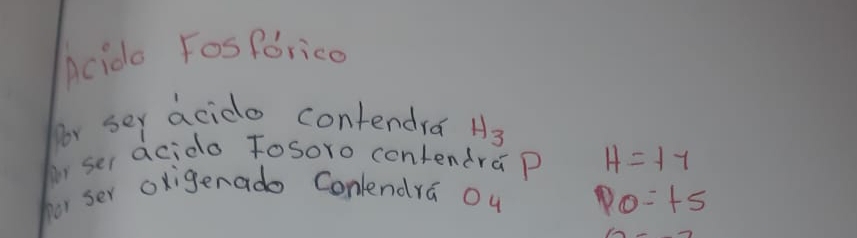 Acido Fosfórico
Por ser ácido contendrá H3
Por ser ácido Fosoro contendrá P H=+1
Por ser oxigenado Contendrá O4 PO=+5